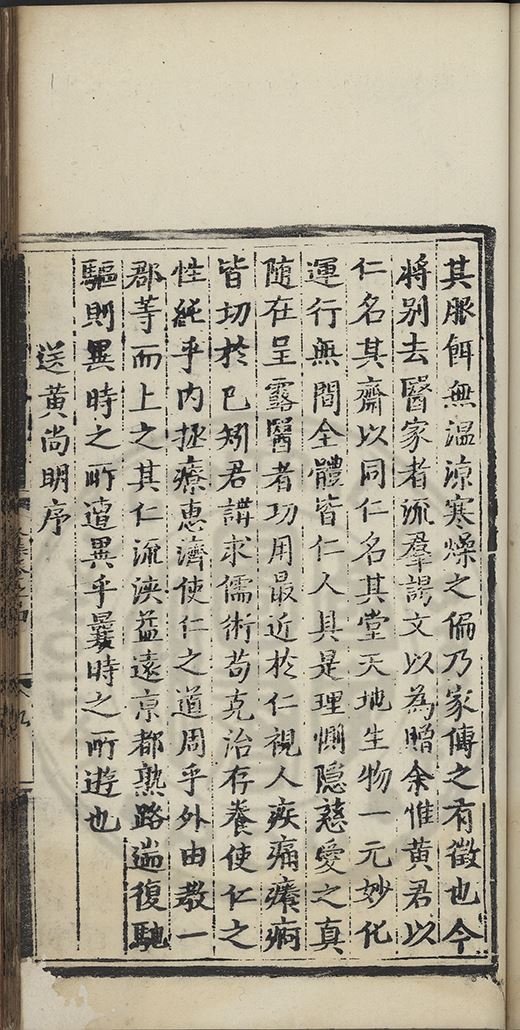 其脉餌無温涼寒燥之偏乃家傳之有徵也今
將别去醫家者流羣謁文以為贈余惟黄君以
仁名其齋以同仁名其堂天地生物一元妙化
運行無間全體皆仁人具是理惻隱慈愛之真
隨在呈露醫者功用最近於仁視人疾痛癢痾
皆切於已矧君講求儒術苟克治存養使仁之
性純乎内拯療恵濟使仁之道周乎外由教一
郡等而上之其仁流浹益遠京都熟路耑復馳
驅則異時之所遭異乎曩時之所遊也
送黄尚明序